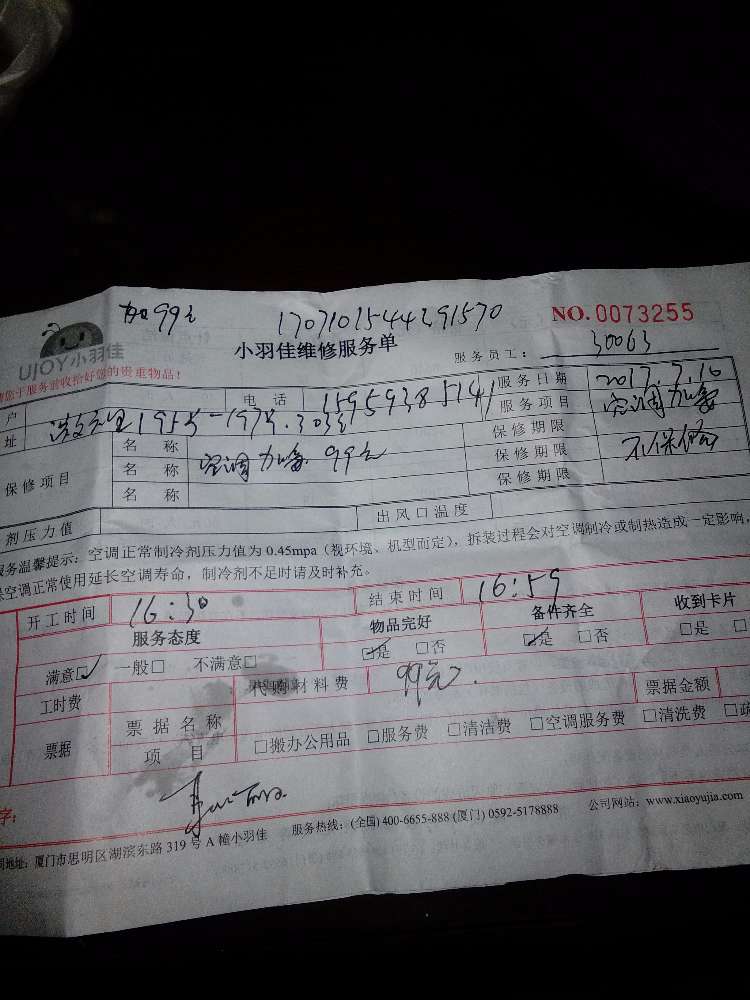 加99元 1707101544291570 NO.0073255
UJOY小羽佳 小羽佳维修服务单 服务员工： 30063
您于服务前收拾好您的贵重物品！
户 电话 15959385141 服务日期 2017.7.10
址 195号-197号.303室 服务项目 空调加氟
保修项目 名称 保修期限 不保修
名称 空调加氟 99元 保修期限
名称 保修期限
剂压力值 出风口温度
服务温馨提示：空调正常制冷剂压力值为 0.45mpa（视环境、机型而定），拆装过程会对空调制冷或制热造成一定影响，
保空调正常使用延长空调寿命，制冷剂不足时请及时补充。
开工时间 16:30 结束时间 16:59
服务态度 物品完好 备件齐全 收到卡片
满意☑ 一般□ 不满意□ ☑是 □否 ☑是 □否 □是 □
工时费 代购材料费 99元.
票据 票据名称 票据金额
项目 □搬办公用品 □服务费 □清洁费 □空调服务费 □清洗费 □疏
字：
司地址：厦门市思明区湖滨东路 319 号 A 幢小羽佳 服务热线：(全国) 400-6655-888 (厦门) 0592-5178888 公司网站：www.xiaoyujia.com